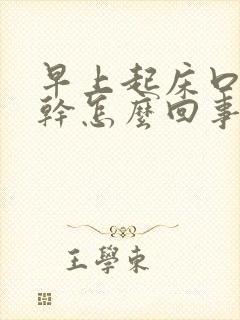 早上起床口
幹怎麼回事
王學東